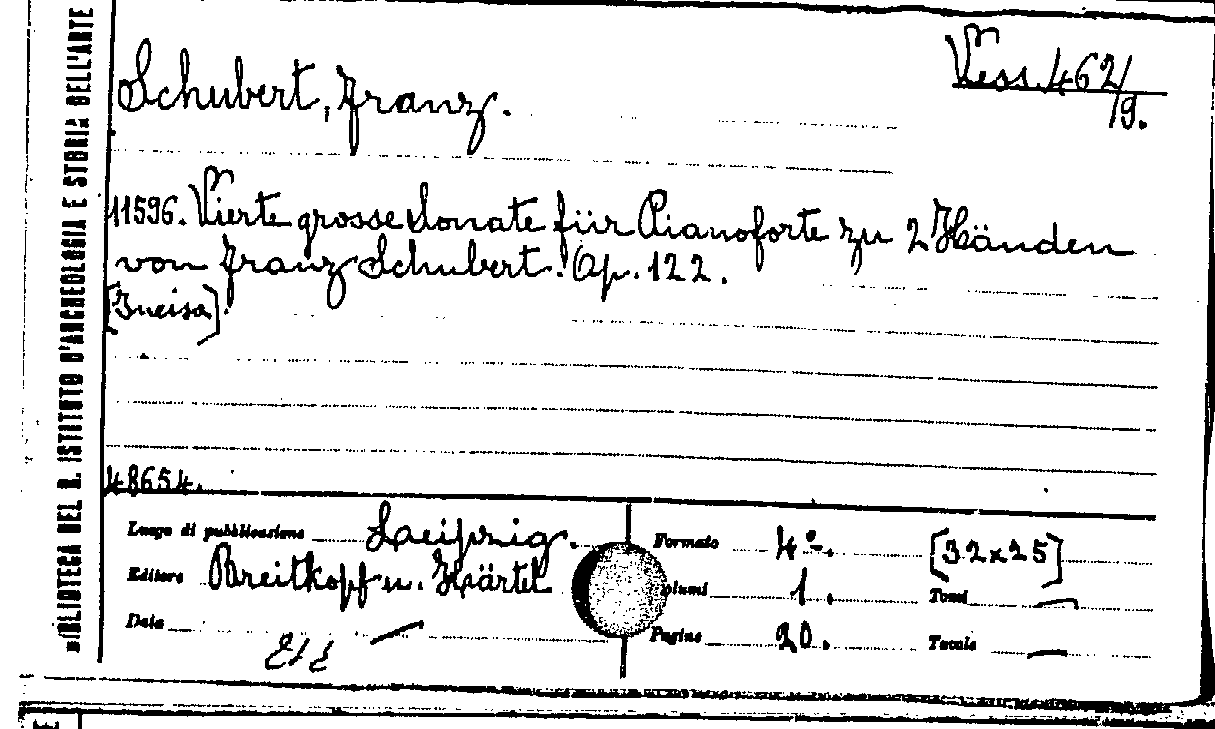 BIBLIOTECA DEL R. ISTITUTO D'ARCHEOLOGIA E STORIA DELL'ARTE
Schubert, Franz.
Vess. 462/9.
11596. Vierte grosse Sonate für Pianoforte zu 2 Händen
von Franz Schubert. Op. 122.
[Incisa].
48654.
Luogo di pubblicazione Leipzig. Formato 4º. [32x25]
Editore Breitkopf u. Härtel Volumi 1. Tomi —
Data — Pagine 20. Tavole —